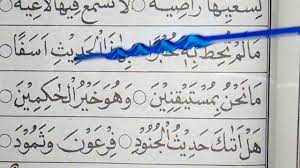 لِسَعْيِهَا رَاضِيَةٌ ○ لَا تَسْمَعُ فِيْهَا لَاغِيَةً ○
مَالَمْ تُحِطْ بِهٖ خُبْرًا ○ بِهٰذَا الْحَدِيْثِ اَسَفًا ○
مَانَحْنُ بِمُسْتَيْقِنِيْنَ ○ وَهُوَ خَيْرُ الْحٰكِمِيْنَ ○
هَلْ اَتٰىكَ حَدِيْثُ الْجُنُوْدِ ○ فِرْعَوْنَ وَثَمُوْدَ ○